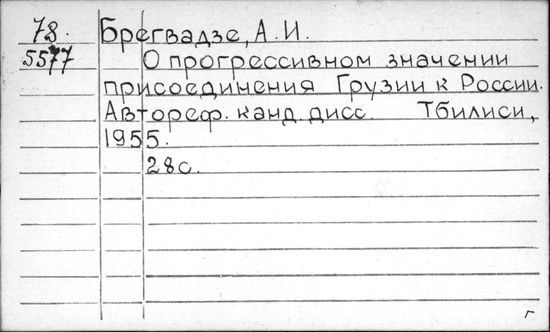 78. Брегвадзе, А.И.
5577 О прогрессивном значении
присоединения Грузии к России.
Автореф. канд. дисс. Тбилиси,
1955.
28с.
г